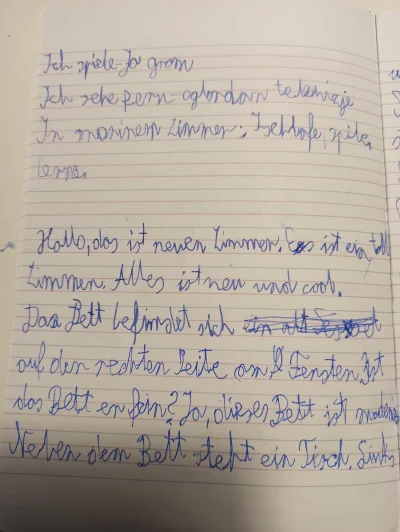 Ich spiele - Ja gram
Ich sehe fern - oglondam telewizje
In meinem Zimmer: I schlafe, spiele,
lerne.
Hallo, das ist neuen Zimmer. Es ist ein toll
Zimmer. Alles ist neu und cool.
Das Bett befindet sich
auf den rechten Seite am Fenster. Ist
das Bett ? Ja, dieses Bett ist
Neben dem Bett steht ein Tisch. Links